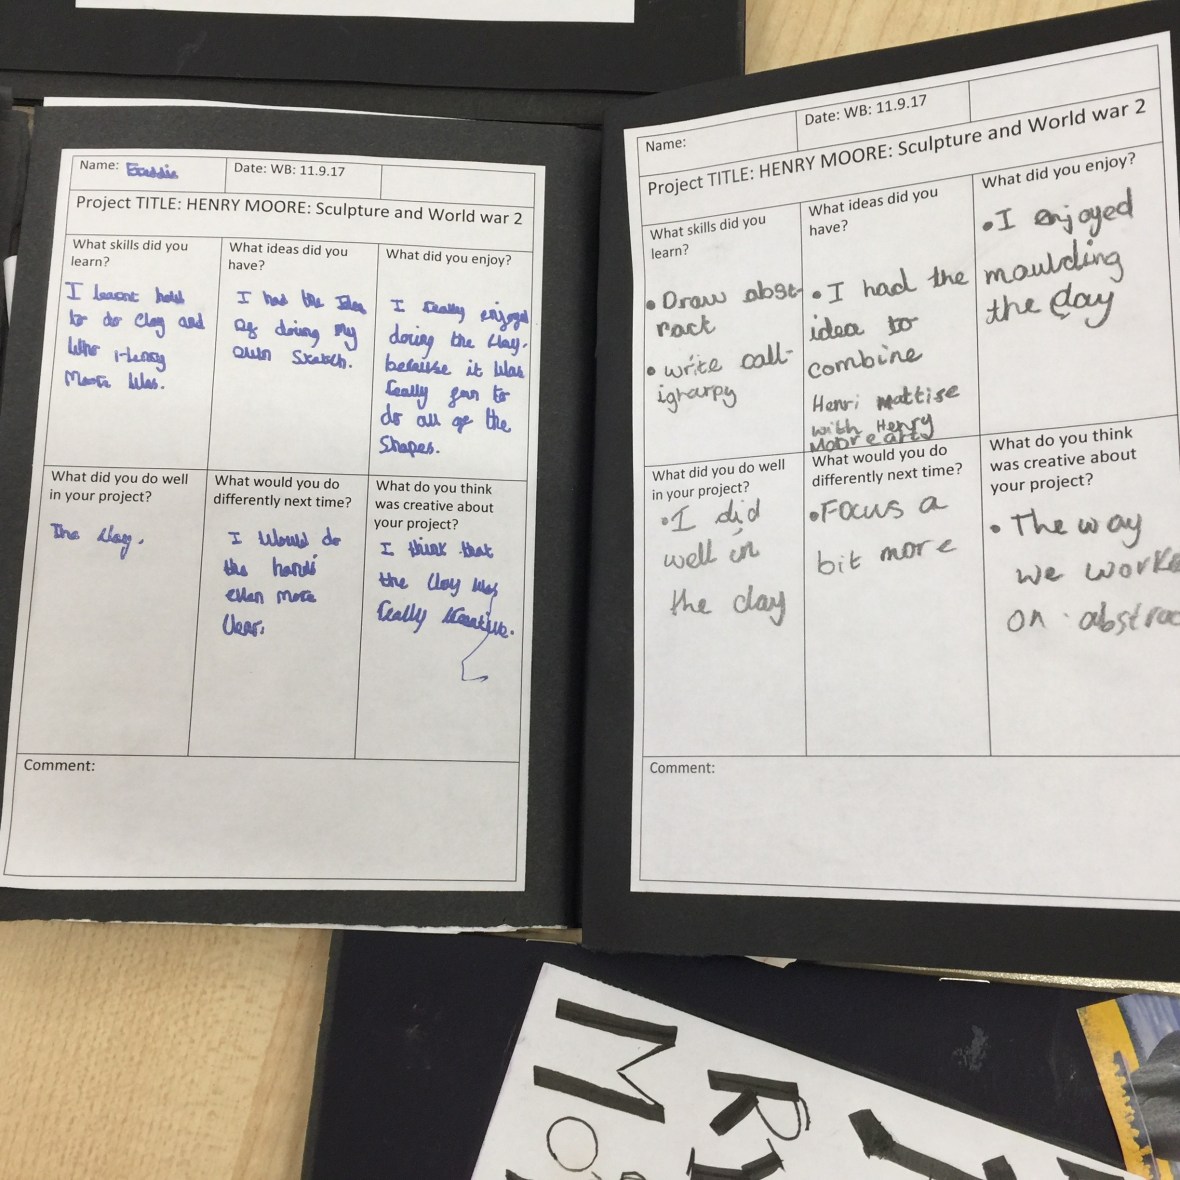 Name:
Date: WB: 11.9.17
Project TITLE: HENRY MOORE: Sculpture and World war 2
What skills did you
learn?
I learnt how
to do clay and
Who Henry
Moore Was.
What ideas did you
have?
I had the Idea
Of doing my
own Sketch.
What did you enjoy?
I really enjoyed
doing the clay.
because it Was
really fun to
do all of the
Shapes.
What did you do well
in your project?
The clay.
What would you do
differently next time?
I Would do
the hands
even more
clear.
What do you think
was creative about
your project?
I think that
the Clay was
really creative.
Comment:
Name:
Date: WB: 11.9.17
Project TITLE: HENRY MOORE: Sculpture and World war 2
What skills did you
learn?
• Draw abst-
ract
• write call-
igharpy
What ideas did you
have?
• I had the
idea to
combine
Henri Mattise
with Henry
Moore arty
What did you enjoy?
• I enjoyed
moulding
the clay
What did you do well
in your project?
• I did
well in
the clay
What would you do
differently next time?
• Focus a
bit more
What do you think
was creative about
your project?
• The way
we worke
on abstrac
Comment:
M
RY
MO